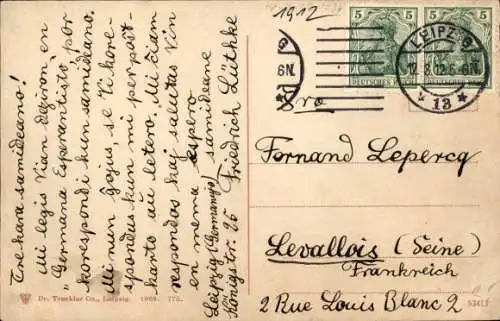 Tre kara samideano!
Mi legis Vian deziron en
"Germana Esperantisto" por
korespondi kun samideano.
Mi nun ĝojus, se Vi kore-
spondus kun mi per poŝt-
karto aŭ letero. Mi ĉiam
respondos kaj salutas Vin
en nema espero samideane
Leipzig (Germanujo) Friedrich Lüthke
Königstr. 25
1912
5 5
DEUTSCHES REICH
LEIPZ
12 6-7N.
* 13 *
6N.
S-ro
Fernand Lepercq
Levallois (Seine)
Frankreich
2 Rue Louis Blanc 2
Dr. Trenkler Co., Leipzig. 1909. 775.